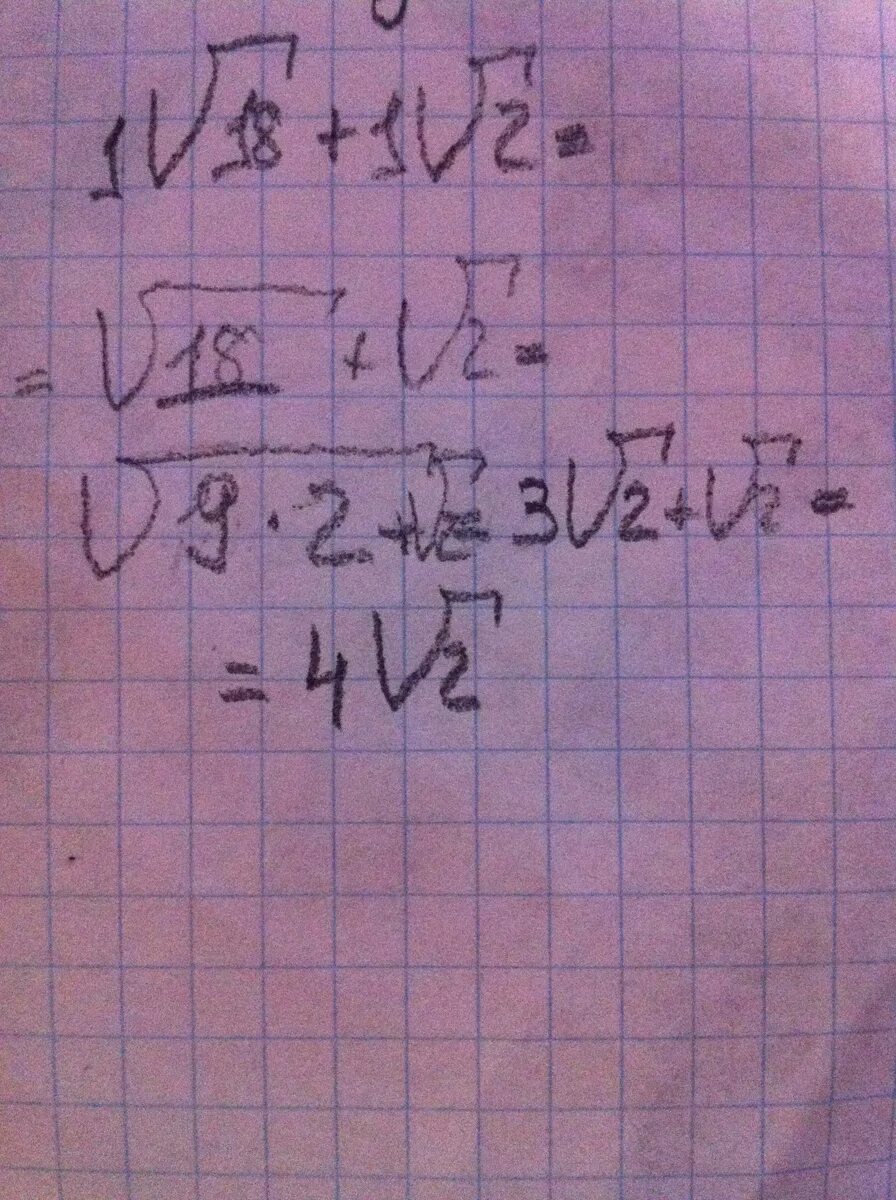 1√18 + 1√2 =
= √18 + √2 =
√9·2 + √2 = 3√2 + √2 =
= 4√2